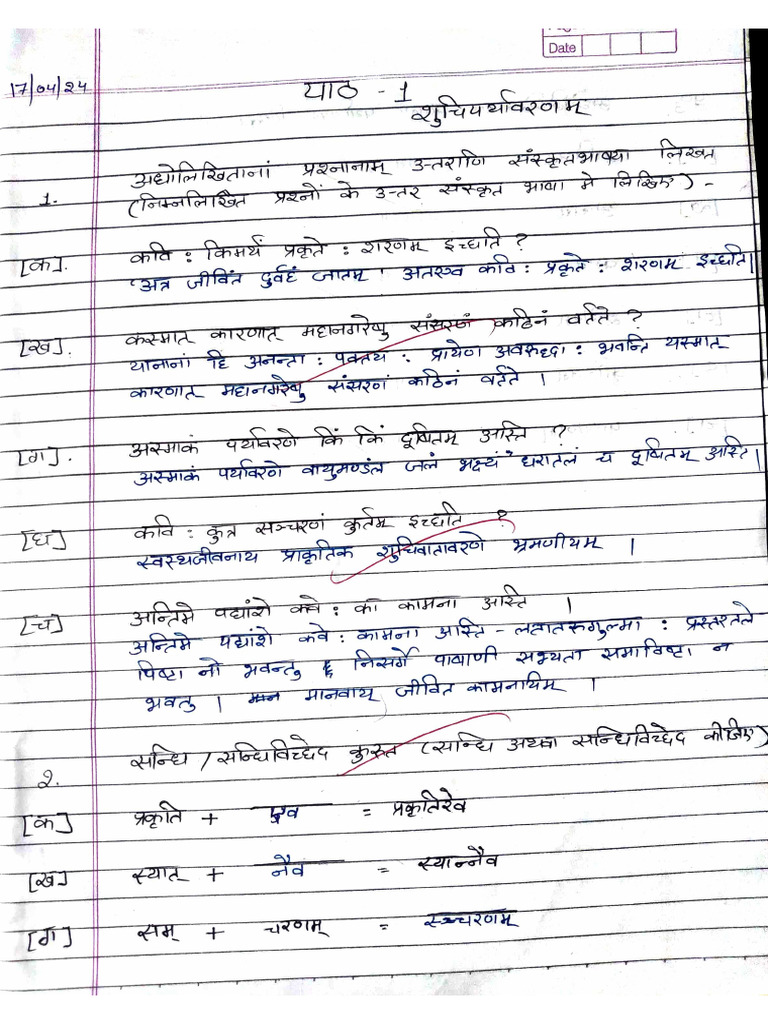 Date
17/04/24
पाठ - 1
शुचिपर्यावरणम्
1. अधोलिखितानां प्रश्नानाम् उत्तराणि संस्कृतभाषया लिखत
(निम्नलिखित प्रश्नों के उत्तर संस्कृत भाषा मे लिखिए) -
[क]. कवि : किमर्थं प्रकृते : शरणम् इच्छति ?
अत्र जीवितं दुर्वहं जातम् । अतएव कवि : प्रकृते : शरणम् इच्छति।
[ख]. कस्मात् कारणात् महानगरेषु संसरणं कठिनं वर्तते ?
यानानां हि अनन्ता : पङ्क्तय : प्रायेण अवरुद्धा : भवन्ति यस्मात्
कारणात् महानगरेषु संसरणं कठिनं वर्तते ।
[ग]. अस्माकं पर्यावरणे किं किं दूषितम् अस्ति ?
अस्माकं पर्यावरणे वायुमण्डंल जलं भक्ष्यं धरातलं च दूषितम् अस्ति।
[घ] कवि : कुत्र सञ्चरणं कुर्तम् इच्छति ?
स्वस्थजीवनाय प्राकृतिक शुचिवातावरणे भ्रमणीयम् ।
[च] अन्तिमे पद्यांशे कवे : का कामना अस्ति ।
अन्तिमे पद्यांशे कवे : कामना अस्ति - लतातरुगुल्मा : प्रस्तरतले
पिष्टा नो भवन्तु निसर्गे पाषाणी सभ्यता समाविष्टा न
भवतु । मानवाय् जीवित कामनायिम् ।
2. सन्धि / सन्धिविच्छेद कुरुत (सन्धि अथवा सन्धिविच्छेद कीजिए)
[क] प्रकृति + एव = प्रकृतिरेव
[ख] स्यात् + नैव = स्यान्नैव
[ग] सम् + चरणम् = सञ्चरणम्